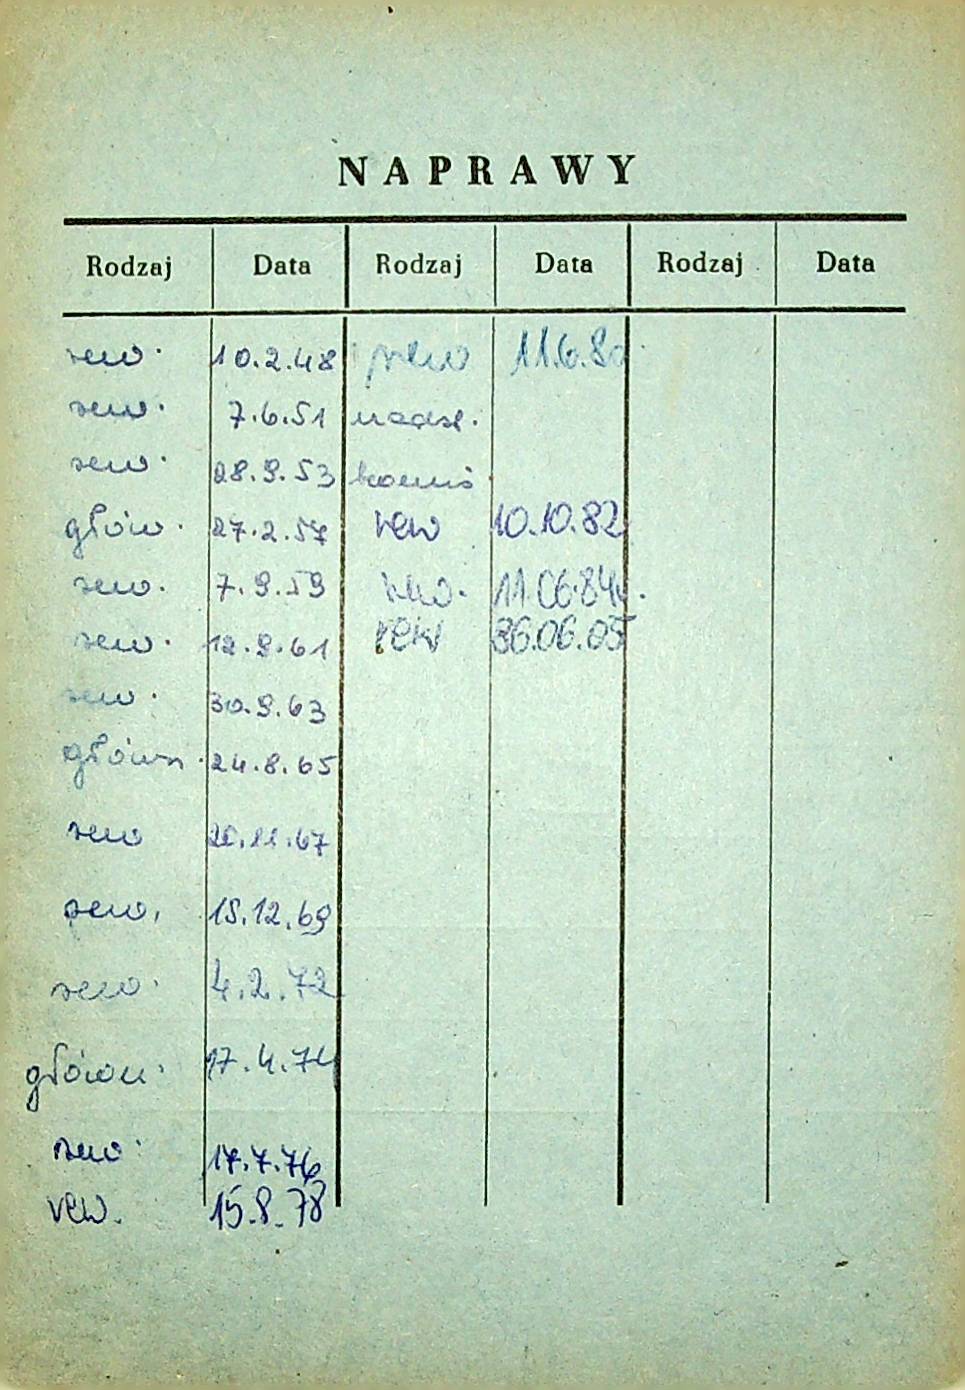 NAPRAWY
Rodzaj Data Rodzaj Data Rodzaj Data
rew. 10.2.48 rew 11.6.80
rew. 7.6.51 nadzl.
rew. 28.9.53
główn. 27.2.57 rew 10.10.82
rew. 7.9.59 rew. 11.06.84r.
rew. 12.9.61 rew 06.05
rew. 30.9.63
główn. 24.8.65
rew 20.11.67
rew. 15.12.69
rew. 4.2.72
główn. 17.4.74
rew. 17.7.76
rew. 15.8.78